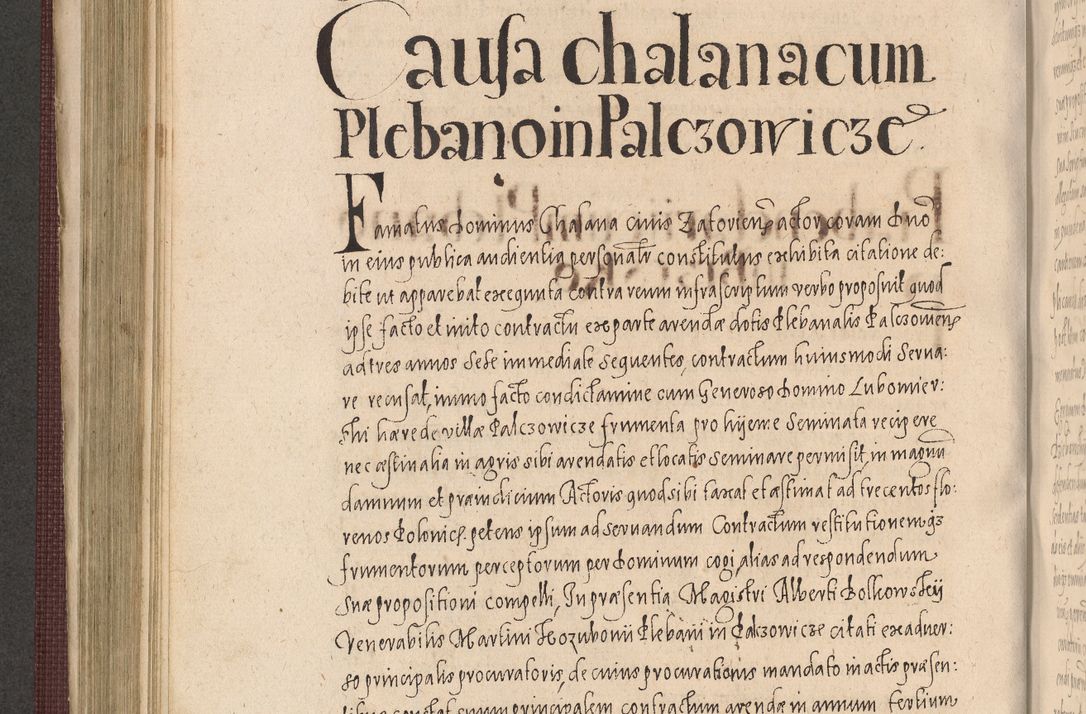 Causa chalanacum
Plebano in Palczowicze
Famatus Dominus Chalana civis Zatoriens̃ actor coram Dno
in eius publica audientia personalr constitutus exhibita citatione de:
bite ut apparebat exequuta contra reum infrascriptum verbo proposuit quod
ipse facto et inito contractu ex parte arendæ dotis Plebanalis Palczowiens̃
ad tres annos sese immediate sequentes, contractum huiusmodi serua:
re recusat, immo facto condictamine cum Generoso Domino Lubomier:
ski hærede villæ Palczowicze frumenta pro hijeme Seminata recipere
nec æstiualia in agris sibi arendatis et locatis seminare permisit, in magnũ
damnum et præiudicium Actoris quod sibi taxat et æstimat ad trecentos flo:
renos Polonic̃. petens ipsum ad seruandum Contractum restitutionemq3
frumentorum perceptorum per Dominum cogi, alias ad respondendum
suæ propositioni compelli, In præsentia Magistri Alberti Bolkowskij
Venerabilis Martini Kozubonii Plebani in Palczowicze citati ex aduer:
so principalis procuratoris, de cuius procurationis mandato in actis præsen:
tibus constat cuum principalem contractum arendæ in annum tertium